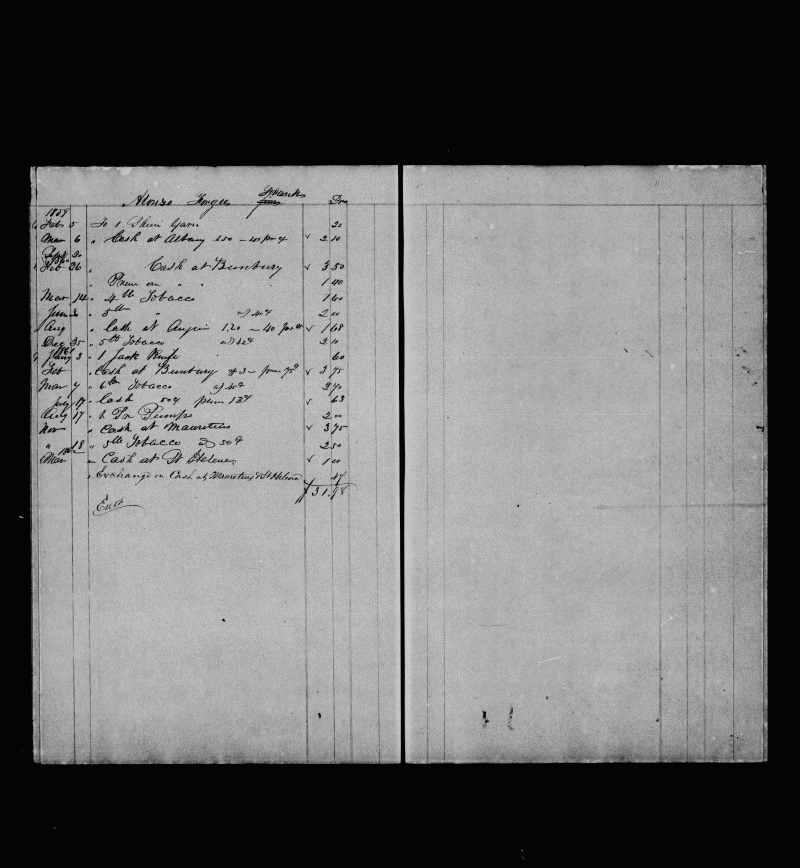 Franks
Alonzo Dr
1859
Feb 5 To 1 Skein Yarn 20
Mar 6 " Cash at Albany 1.50 — 40 pr ct √ 2 10
Sept 20
1860
Feb 26 " Cash at Bunbury √ 3 50
" Prem on " " 1 40
Mar 14 " 4 lb Tobacco 1 60
June 30 " 5 lb " @ 40¢ 2 00
Aug " Cash at 1.20 — 40 pr ct √ 1 68
Dec 25 " 5 lb Tobacco @ 42¢ 2 10
1861
Jany 3 " 1 Jack Knife 60
Feb " Cash at Bunbury of 3 — prem 75¢ √ 3 75
Mar 7 " 6 lb Tobacco @ 40¢ 2 40
July 17 " Cash 50¢ prem 13¢ √ 63
Aug 17 " 1 Pr Pumps 2 00
Nov " Cash at Mauritius √ 3 75
" 18 " 5 lb Tobacco @ 50¢ 2 50
1862
Mar " Cash at St Helena √ 1 00
" Exchange on Cash at Mauritius & St Helena 47
$31.68